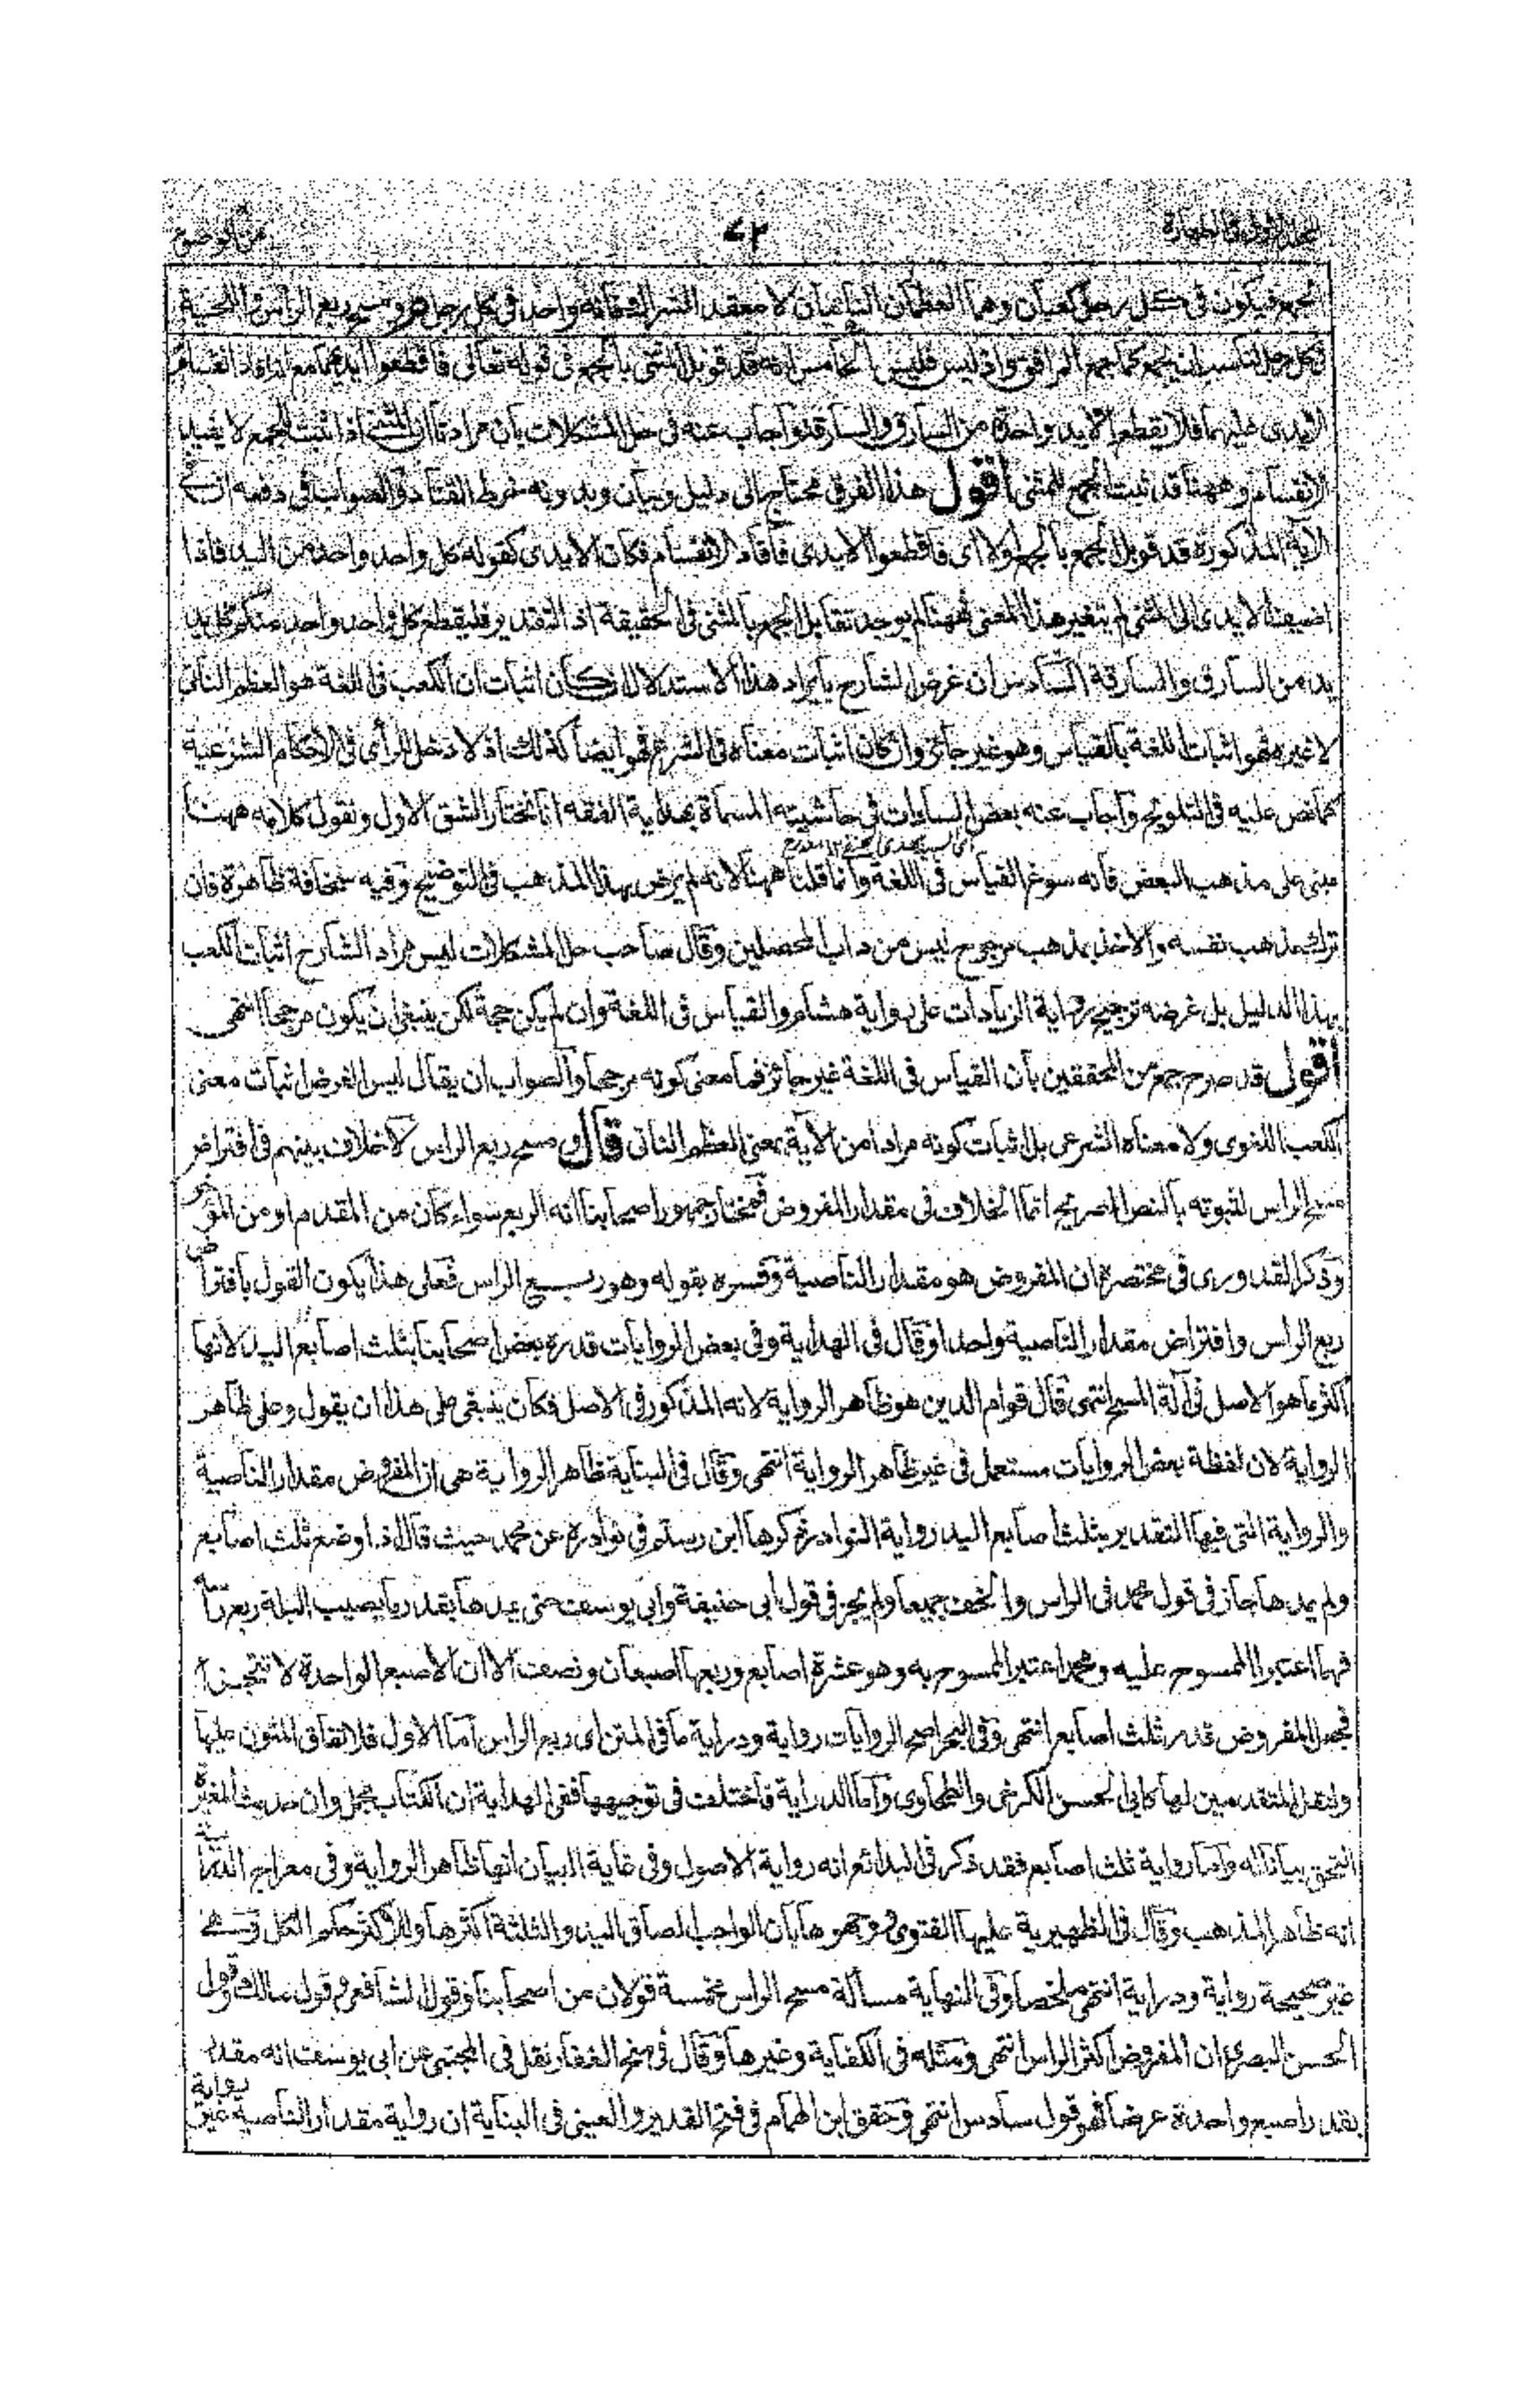 المجلد الاول فى الطهارة ٤٢ من الوضوء
لجمع فيكون فى كل رجل كعبان وهما العظمان الناتيان لا معقد الشراك فانه واحد فى كل رجل هو ومسح ربع الراس واللحية
فى كل رجل لناسب ان يجمع كما جمع المرافق واذ ليس فليس الخامس انه قد قوبل المثنى بالجمع فى قوله تعالى فاقطعوا ايديهما مع افادة انقسام
الايدى عليهما فلا يقطع الا يد واحدة من السارق والسارقة واجاب عنه فى حل المشكلات بان مرادنا ان المثنى اذا ثبت للجمع لا يفيد
الانقسام وههنا قد ثبت الجمع للمثنى اقول هذا الفرق محتاج الى دليل وبيان وبدونه خرط القتاد والصواب فى دفعه ان فى
الآية المذكورة قد قوبل الجمع بالجمع اولا اى فاقطعوا الايدى فافاد الانقسام فكان الايدى كقوله كل واحد واحد من اليد فاذا
اضيفنا الايدى الى المثنى لم يتغير هذا المعنى فههنا لم يوجد تقابل الجمع بالمثنى فى الحقيقة اذ التقدير فليقطع كل واحد واحد منكم كل يد
يد من السارق والسارقة السادس ان غرض الشارح بايراد هذا الاستدلال ان كان اثبات ان الكعب فى اللغة هو العظم الناتى
لا غيره فهو اثبات اللغة بالقياس وهو غير جائز وان كان اثبات معناه فى الشرع فهو ايضا كذلك اذ لا دخل للرأى فى الاحكام الشرعية
كما نص عليه فى التلويح واجاب عنه بعض السادات فى حاشيته المسماة بهداية الفقه انا نختار الشق الاول ونقول كلامه ههنا
مبنى على مذهب البعض فانه سوغ القياس فى اللغة وانما قلنا ههنا لانه لم يرض بهذا المذهب فى التوضيح وفيه سخافة ظاهرة فان
ترك مذهب نفسه والاخذ بمذهب مرجوح ليس من داب المحصلين وقال صاحب حل المشكلات ليس مراد الشارح اثبات الكعب
بهذا الدليل بل غرضه ترجيح رواية الزيادات على رواية هشام والقياس فى اللغة وان لم يكن حجة لكن ينبغى ان يكون مرجحا انتهى
اقول قد صرح جمع من المحققين بان القياس فى اللغة غير جائز فما معنى كونه مرجحا والصواب ان يقال ليس الغرض اثبات معنى
الكعب اللغوى ولا معناه الشرعى بل اثبات كونه مرادا من الآية بمعنى العظم الناتى قال ومسح ربع الراس لا خلاف بينهم فى افتراض
مسح الراس لثبوته بالنص الصريح انما الخلاف فى مقدار المفروض فمختار جمهور اصحابنا انه الربع سواء كان من المقدم او من المؤخر
وذكر القدورى فى مختصره ان المفروض هو مقدار الناصية وفسره بقوله وهو ربع الراس فعلى هذا يكون القول بافتراض
ربع الراس وافتراض مقدار الناصية واحدا وقال فى الهداية وفى بعض الروايات قدره بعض اصحابنا بثلث اصابع اليد لانها
اكثر ما هو الاصل فى آلة المسح انتهى قال قوام الدين هو ظاهر الرواية لانه المذكور فى الاصل فكان ينبغى على هذا ان يقول وعلى ظاهر
الرواية لان لفظة بعض الروايات مستعمل فى غير ظاهر الرواية انتهى وقال فى البناية ظاهر الرواية هى ان المفروض مقدار الناصية
والرواية التى فيها التقدير بثلث اصابع اليد رواية النوادر ذكرها ابن رستم فى نوادره عن محمد حيث قال اذا وضع ثلث اصابع
ولم يمدها جاز فى قول محمد فى الراس والخف جميعا ولم يجز فى قول ابى حنيفة وابى يوسف حتى يمدها بقدر ما يصيب البلة ربع راسه
فهما اعتبرا الممسوح عليه ومحمد اعتبر الممسوح به وهو عشرة اصابع وربعها اصبعان ونصف الا ان الاصبع الواحدة لا تتجزأ
فجعل المفروض قدر ثلث اصابع انتهى وفى البحر اصح الروايات رواية ودراية ما فى المتن اى ربع الراس اما الاول فلاتفاق المتون عليها
ولنقل المتقدمين لها كابى الحسن الكرخى والطحاوى واما الدراية فاختلف فى توجيهها ففى الهداية ان الكتاب مجمل وان حديث المغيرة
التحق بيانا له واما رواية ثلث اصابع فقد ذكر فى البدائع انه رواية الاصول وفى غاية البيان انها ظاهر الرواية وفى معراج الدراية
انه ظاهر المذهب وقال فى الظهيرية عليها الفتوى ووجهوها بان الواجب الصاق اليد والثلثة اكثرها وللاكثر حكم الكل وهى
غير صحيحة رواية ودراية انتهى ملخصا وفى النهاية مسألة مسح الراس مخمسة قولان من اصحابنا وقول الشافعى وقول مالك وقول
الحسن البصرى ان المفروض اكثر الراس انتهى ومثله فى الكفاية وغيرها وقال فى منح الغفار نقل فى المجتبى عن ابى يوسف انه مقدار
بقدر اصبع واحدة عرضا فهو قول سادس انتهى وحقق ابن الهمام فى فتح القدير والعينى فى البناية ان رواية مقدار الناصية غير رواية